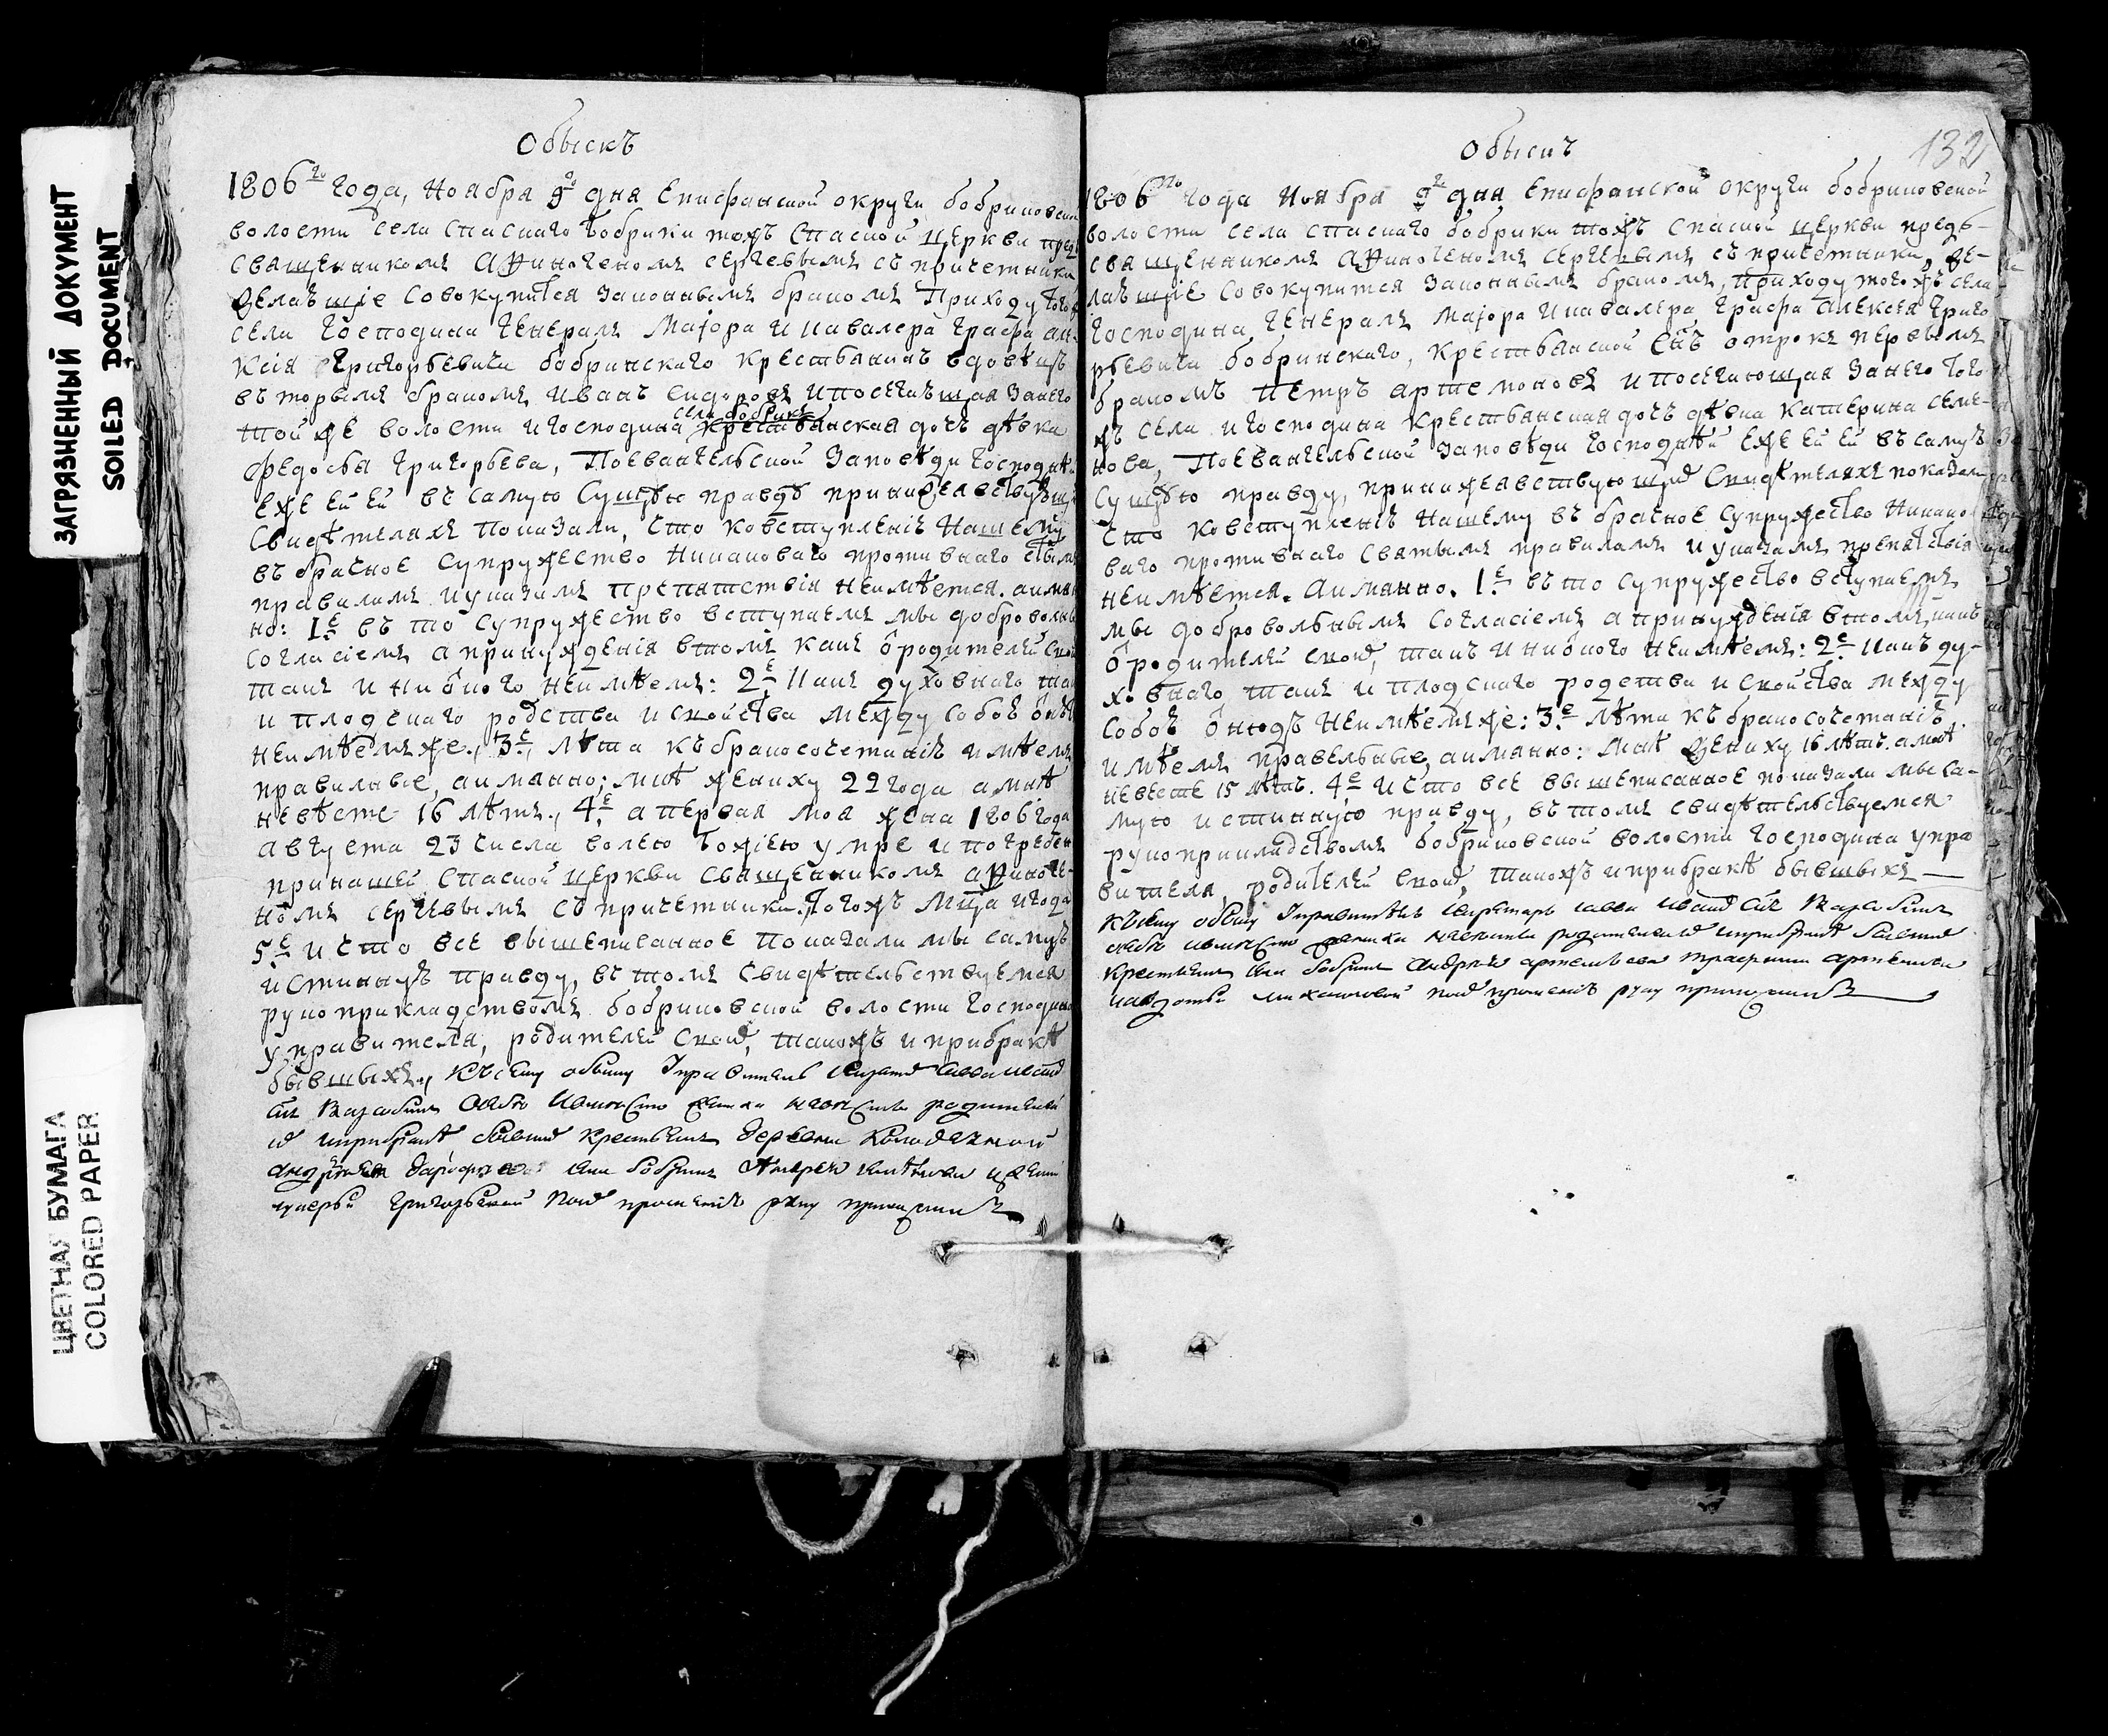 ЗАГРЯЗНЕННЫЙ ДОКУМЕНТ
SOILED DOCUMENT
ЦВЕТНАЯ БУМАГА
COLORED PAPER
Обыскъ
1806го года, Ноября 9го дня Епифанской округи бобриковской
волости села Спаскаго Бобрики тожъ Спаской церкви предъ
священникомъ Афиногеномъ Сергевымъ съ причетники
желающіе совокупится законнымъ бракомъ Приходу того
села Господина Генералъ Маіора и кавалера Графа але-
ксія Григорьевича бобринскаго крестьянинъ вдовецъ
вторымъ бракомъ Иванъ Сидоровъ и посягающая Занего
той же волости и господина села бобрикъ крестьянская дочь дѣвка
Федосья Григорьева, Поевангельской Заповѣди Господней
еже ей ей въ самую сущую правду при нижеявствующихъ
свидѣтеляхъ показали, что ковступленію Нашему
въ брачное супружество Никаковаго противнаго святымъ
правиламъ и указамъ препятствія неимѣется. аимян-
но: 1е въ то супружество вступаемъ мы добровольнымъ
согласіемъ а принужденія втомъ какъ ѿ родителей своихъ
такъ и ни ѿ кого неимѣемъ: 2е Какъ духовнаго так
и плодскаго родства и свойства между собою ѿнюдъ
неимѣемъ же., 3е, лѣта къ бракосочетанію имѣемъ
правилные, аимянно; мнѣ жениху 22 года а мнѣ
невѣсте 16 лѣтъ., 4е а первая моя жена 1806 года
августа 23 числа волею Божіею умре и погребена
принашей Спаской церкви священникомъ афиноге-
номъ Сергевымъ съ причетники, тогожъ мца и года
5е и что все вышеписанное показали мы самую
истинную правду, въ томъ свидѣтельствуемся
рукоприкладствомъ бобриковской волости господина
управителя, родителей своихъ, такожъ и прибракѣ
бывшыхъ., Къ сему обыску Управитель
родителей
ихъ и прибракѣ бывшихъ крестьянъ деревни
села бобрикъ Андрея
Григорьевой по ихъ прошенію руку приложилъ
132
Обыскъ
1806го года Ноября 9го дня Епифанской округи бобриковской
волости села Спаскаго бобрики тожъ Спаской церкви предъ-
священникомъ Афиногеномъ Сергевымъ съ причетники, же-
лающіе совокупится законнымъ бракомъ, приходу тогожъ села
Господина Генералъ Маіора и кавалера Графа Алексея Григо
рьевича бобринскаго, крестьянской снъ отрокъ первымъ
бракомъ Петръ артемоновъ и посягающая Занего того
жъ села и господина крестьянская дочь дѣвка катерина семе-
нова, Поевангельской Заповѣди Господней еже ей ей въ самую
сущую правду, при нижеявствующихъ свидѣтеляхъ показали
что ковступленію Нашему въ брачное супружество Никако
ваго противнаго святымъ правиламъ и указамъ препятствія
неимѣется. аимянно. 1е въ то супружество вступаемъ
мы добровольнымъ согласіемъ а принужденія втомъ, какъ
ѿ родителей своихъ, такъ и ни ѿ кого неимѣемъ: 2е Какъ ду-
ховнаго такъ и плодскаго родства и свойства между
собою ѿнюдъ неимѣемъ же: 3е лѣта къ бракосочетанію
имѣемъ правельные, аимянно: мнѣ Жениху 16 лѣтъ. а мнѣ
невесте 15 лѣтъ. 4е И что все вышеписанное показали мы са-
мую истинную правду, въ томъ свидѣтельствуемся
рукоприкладствомъ бобриковской волости господина упра
вителя, родителей своихъ, такожъ и прибракѣ бывшыхъ
Къ сему обыску Управитель
родителей ихъ и прибракѣ бывшихъ
крестьянъ села бобрикъ Андрея артемьева
по ихъ прошенію руку приложилъ